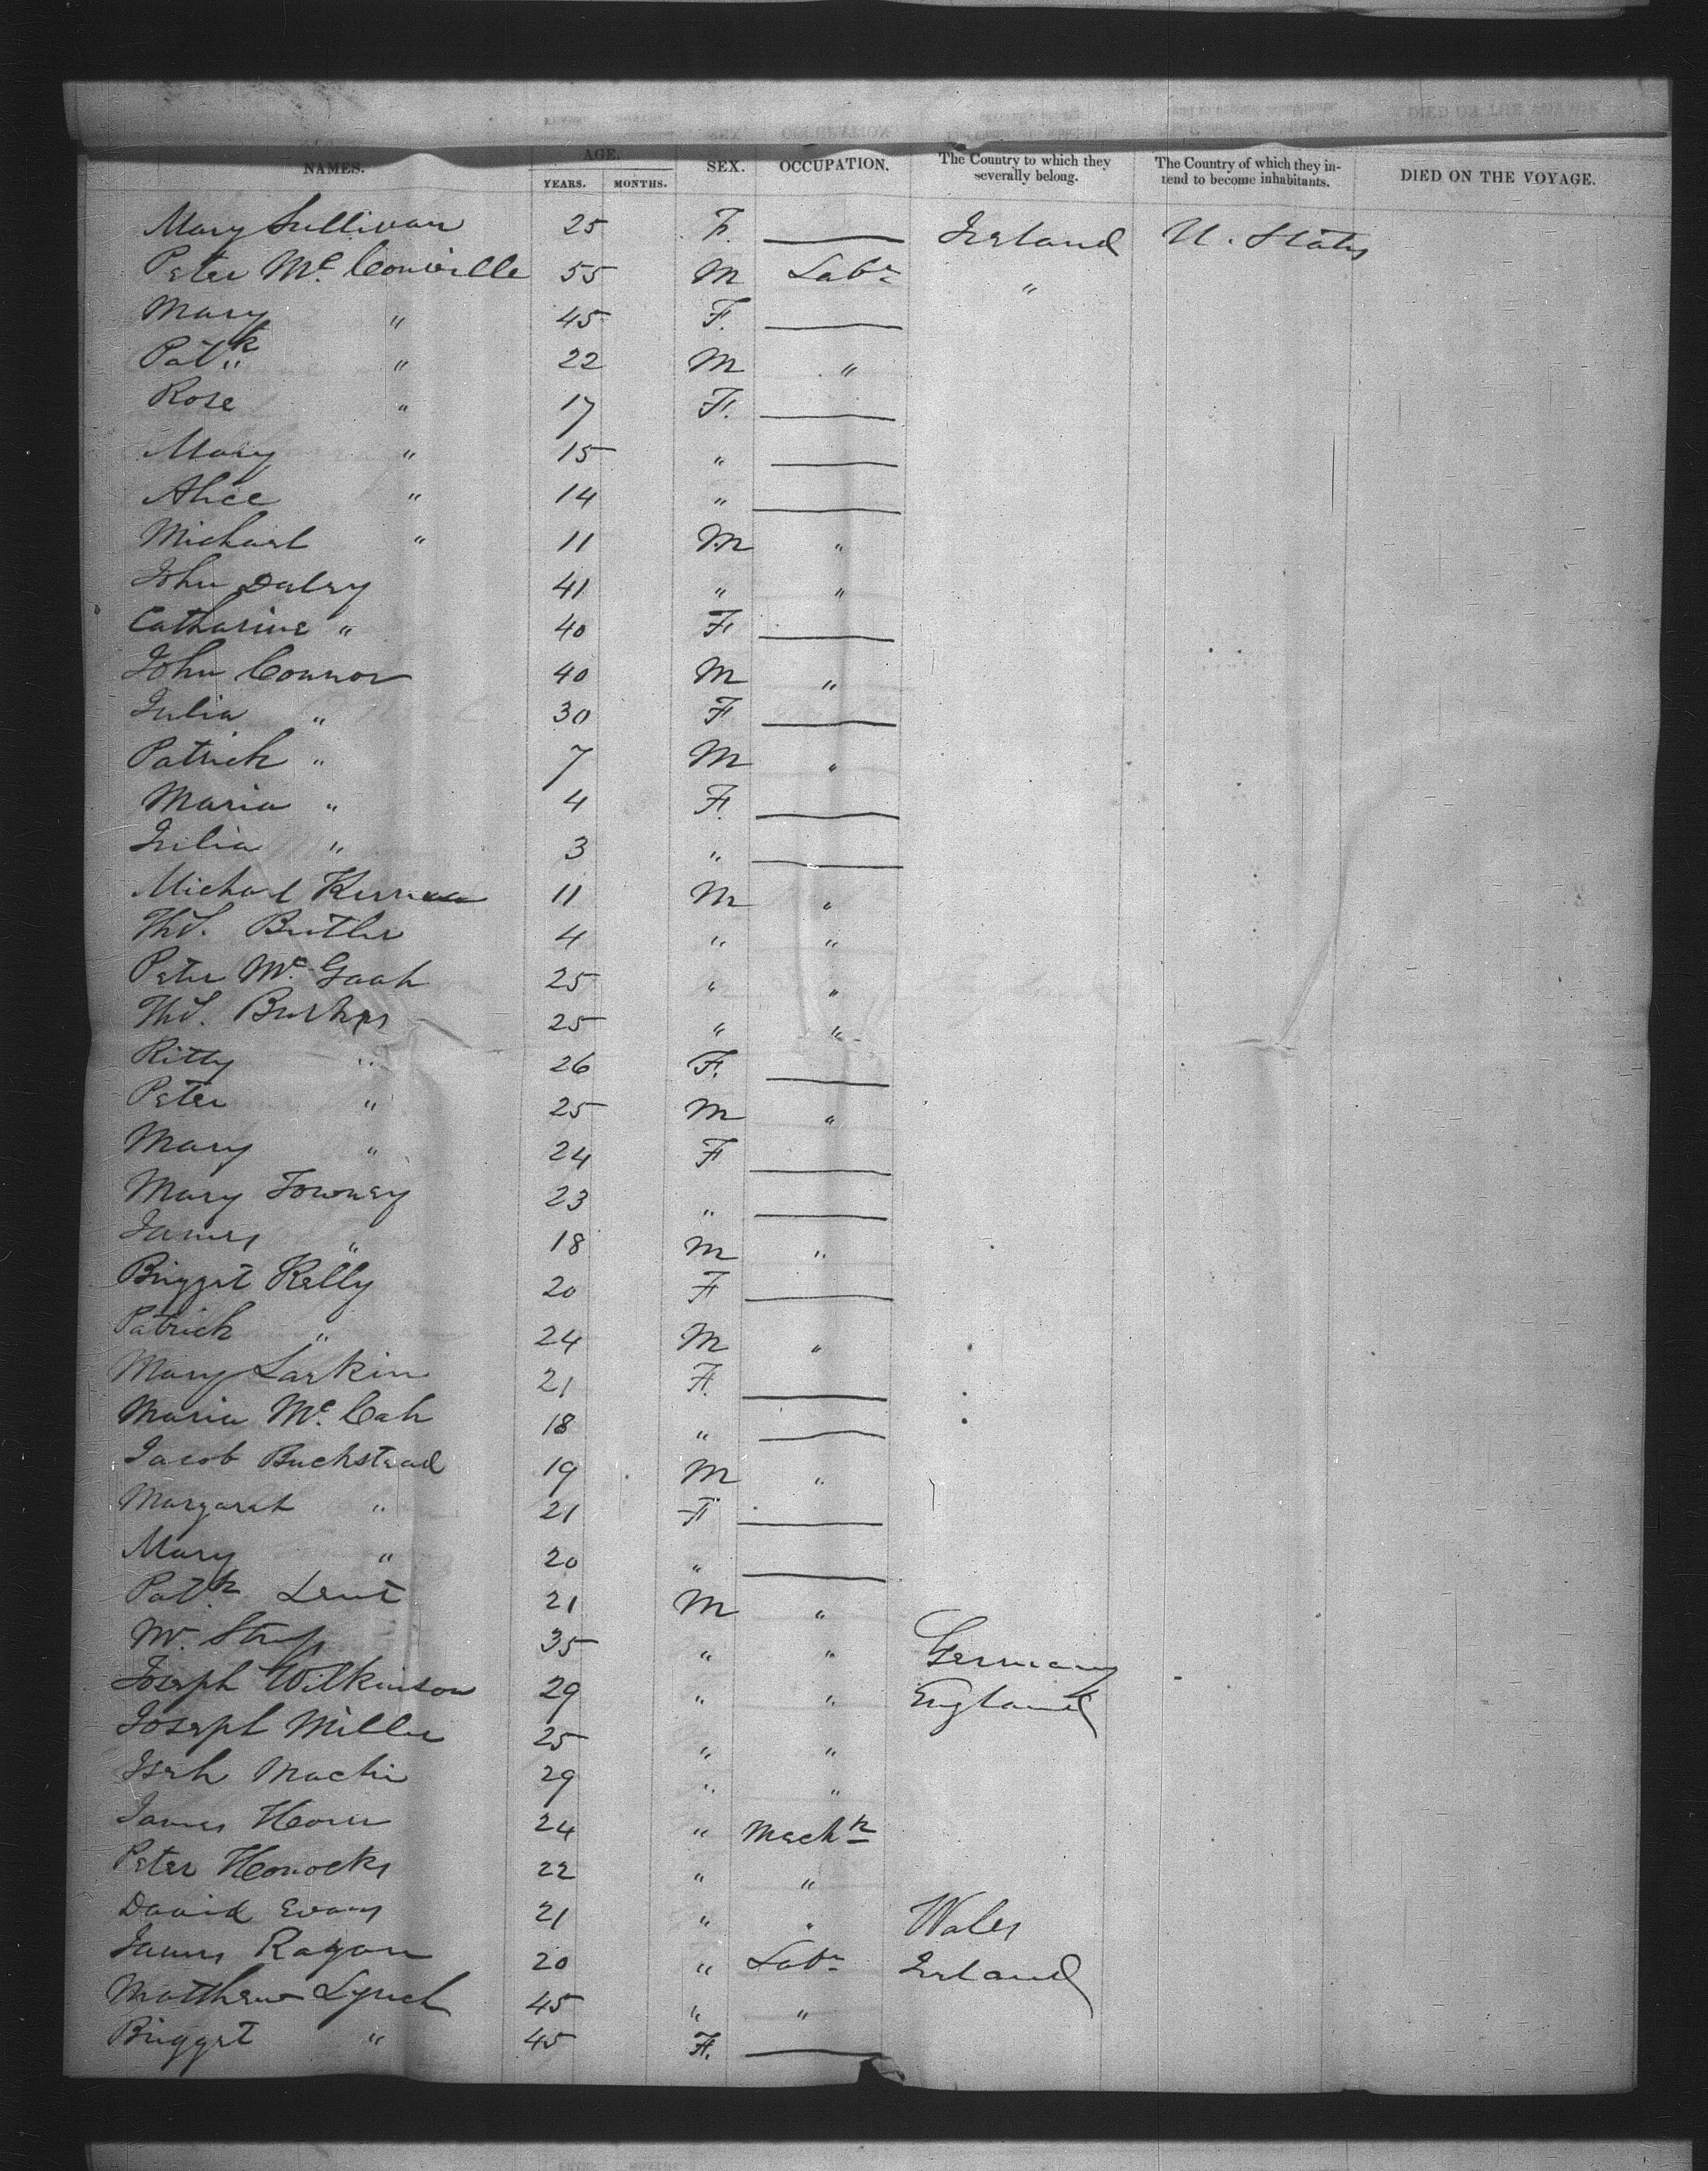 NAMES. AGE. SEX. OCCUPATION. The Country to which they severally belong. The Country of which they intend to become inhabitants. DIED ON THE VOYAGE.
YEARS. MONTHS.
Mary Sullivan 25 F. —— Ireland U. States
Peter Mc. Conville 55 M Labr "
Mary " 45 F. ——
Patk " 22 M "
Rose " 17 F. ——
Mary " 15 " ——
Alice " 14 " ——
Michael " 11 M "
John Daley 41 " "
Catharine " 40 F ——
John Connor 40 M "
Julia " 30 F ——
Patrick " 7 M "
Maria " 4 F. ——
Julia " 3 " ——
Michael 11 M "
Thos. Butler 4 " "
Peter Mc. Gaah 25 " "
Thos. 25 " "
Kitty " 26 F. ——
Peter " 25 M "
Mary " 24 F ——
Mary Towney 23 " ——
James " 18 M "
Briggrt Kelly 20 F ——
Patrick " 24 M "
Mary Larkin 21 F. ——
Maria Mc. Cah 18 " ——
Jacob Buckstead 19 M "
Margaret " 21 F ——
Mary " 20 " ——
Patk. Lent 21 M "
35 " " Germany
Joseph Wilkinson 29 " " England
Joseph Miller 25 " "
29 " "
James 24 " Mechk
Peter 22 " "
David Evans 21 " " Wales
James Ragan 20 " Labr Ireland
Matthew Lynch 45 " "
Briggrt " 45 F. ——